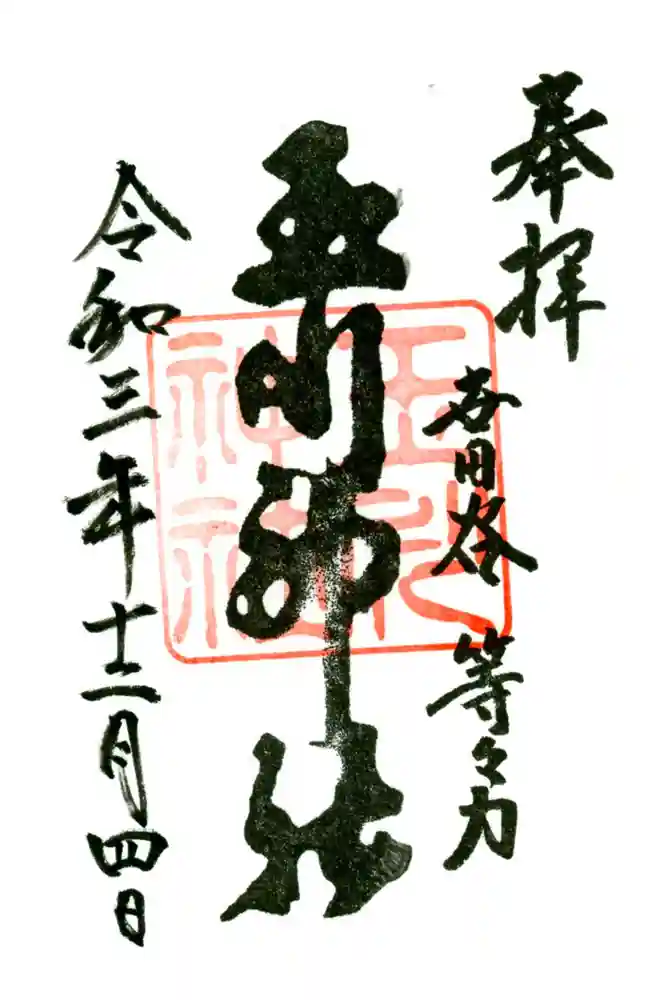 奉拝
世田谷 等々力
玉川神社
玉川神社
令和三年十二月四日